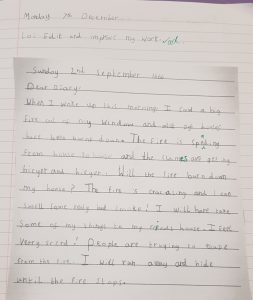 Monday 7th December
L.O: Edit and improve my work.
Sunday 2nd September 1666
Dear Diary:
When I woke up this morning I could a big
fire out of my window and alot of houses
have been burnt down. The fire is
from house to house and the flames are geting
higyer and higyer. Will the fire burn down
my house? The fire is craceling and I can
smell some realy bad smoke! I will have take
some of my things to my friends house. I feel
very scird! People are trying to
from the fire. I will run away and hide
until the fire stops.